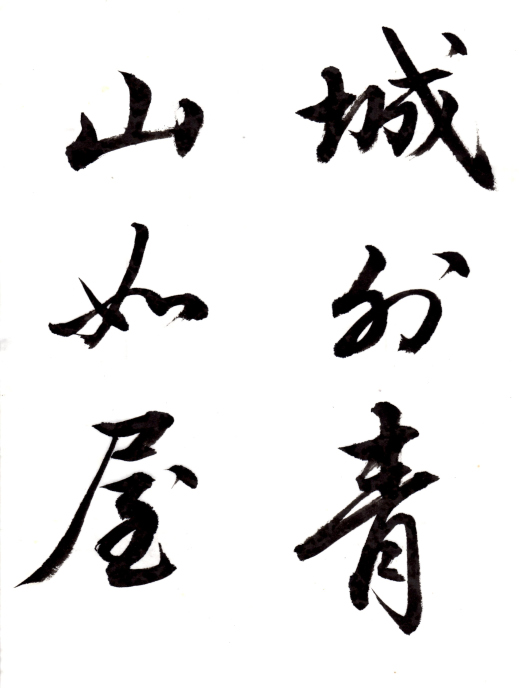 城外青
山如屋